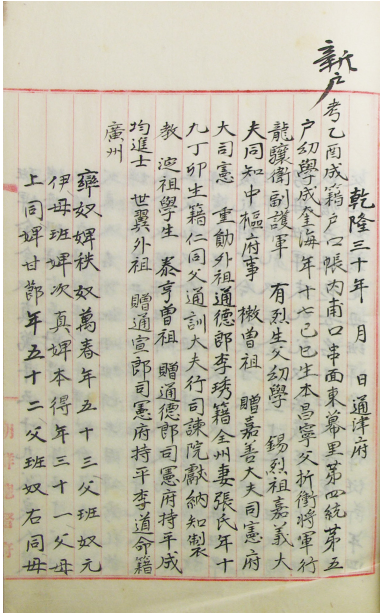 新户
乾隆三十年 月 日通津府
考乙酉成籍户口帳內甫口串面東幕里第四統第五
户幼學成奎海年十七己巳生本昌寧父折衝將軍行
龍驤衛副護軍 有烈生父幼學 錫烈祖嘉義大
夫同知中樞府事 曾祖 贈嘉善大夫司憲府
大司憲 重勛外祖通德郎李琇籍全州妻張氏年十
九丁卯生籍仁同父通訓大夫行司諫院獻納知製
教 祖學生 泰亨曾祖 贈通德郎司憲府持平成
均進士 世翼外祖 贈通宣郎司憲府持平李道命籍
廣州
奴婢秩奴萬春年五十三父班奴元
伊母班婢次真婢本得年三十一父母
上同婢甘節年五十二父班奴右同母